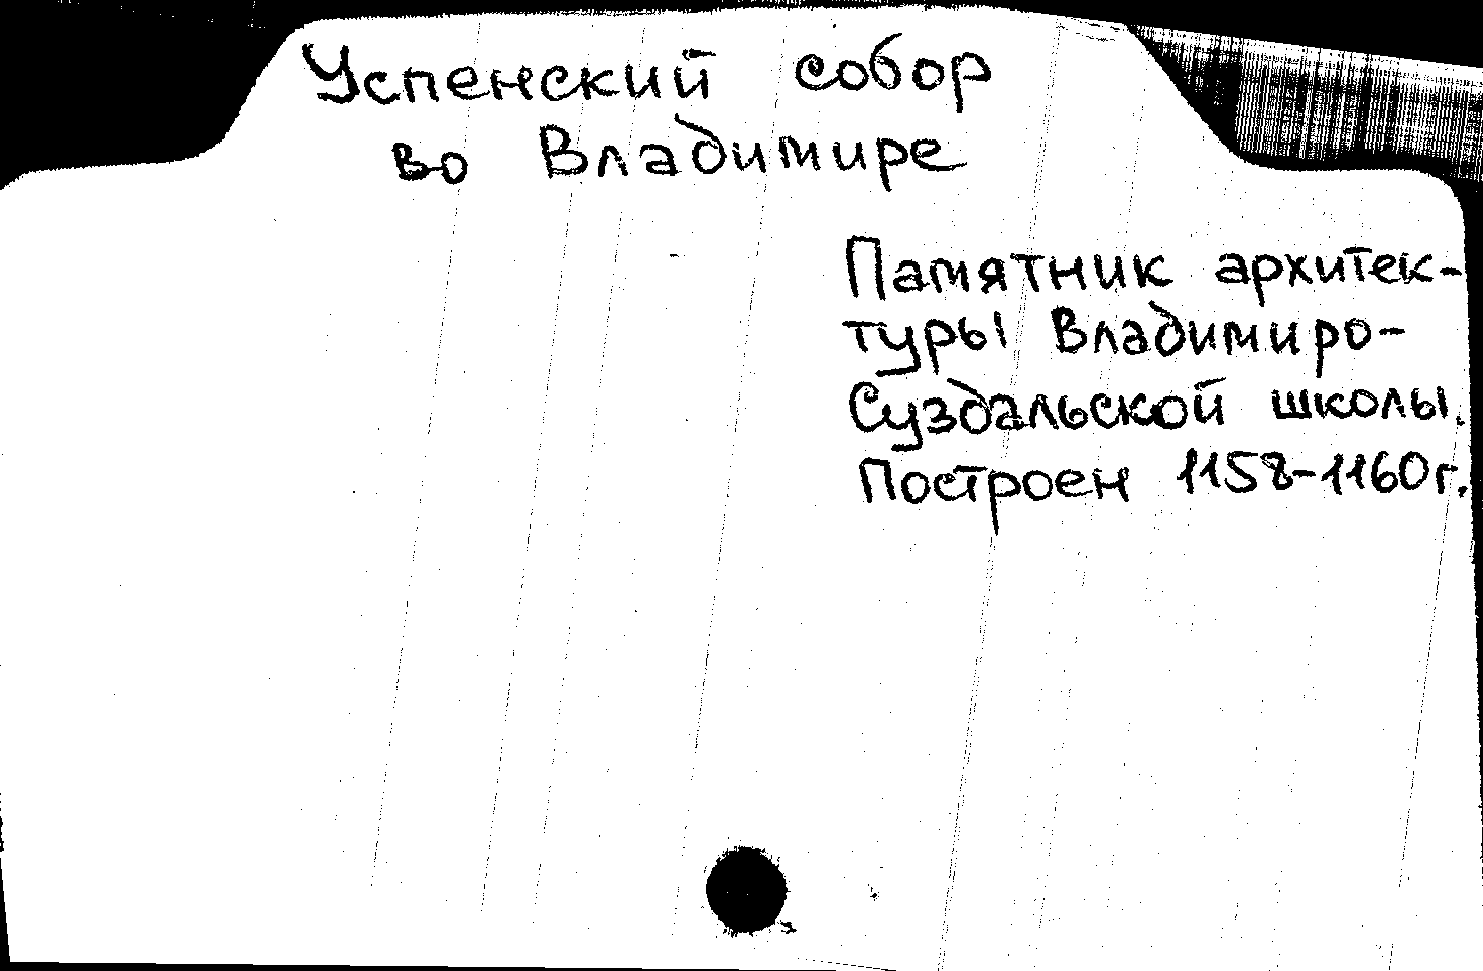 Успенский собор
во Владимире
Памятник архитек-
туры Владимиро-
Суздальской школы.
Построен 1158-1160г.